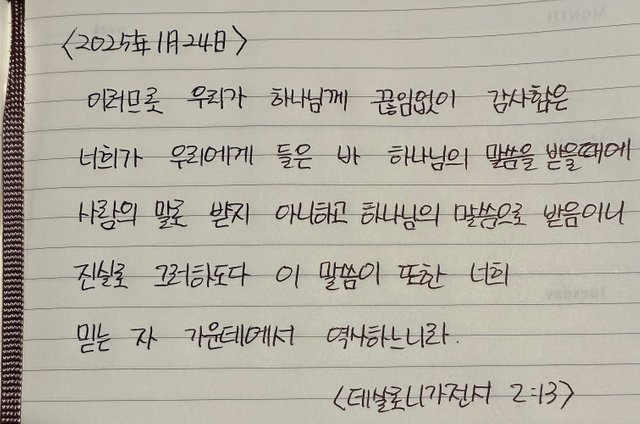 <2025年 1月 24日>
이러므로 우리가 하나님께 끊임없이 감사함은
너희가 우리에게 들은 바 하나님의 말씀을 받을때에
사람의 말로 받지 아니하고 하나님의 말씀으로 받음이니
진실로 그러하도다 이 말씀이 또한 너희
믿는 자 가운데에서 역사하느니라.
<데살로니가전서 2:13>